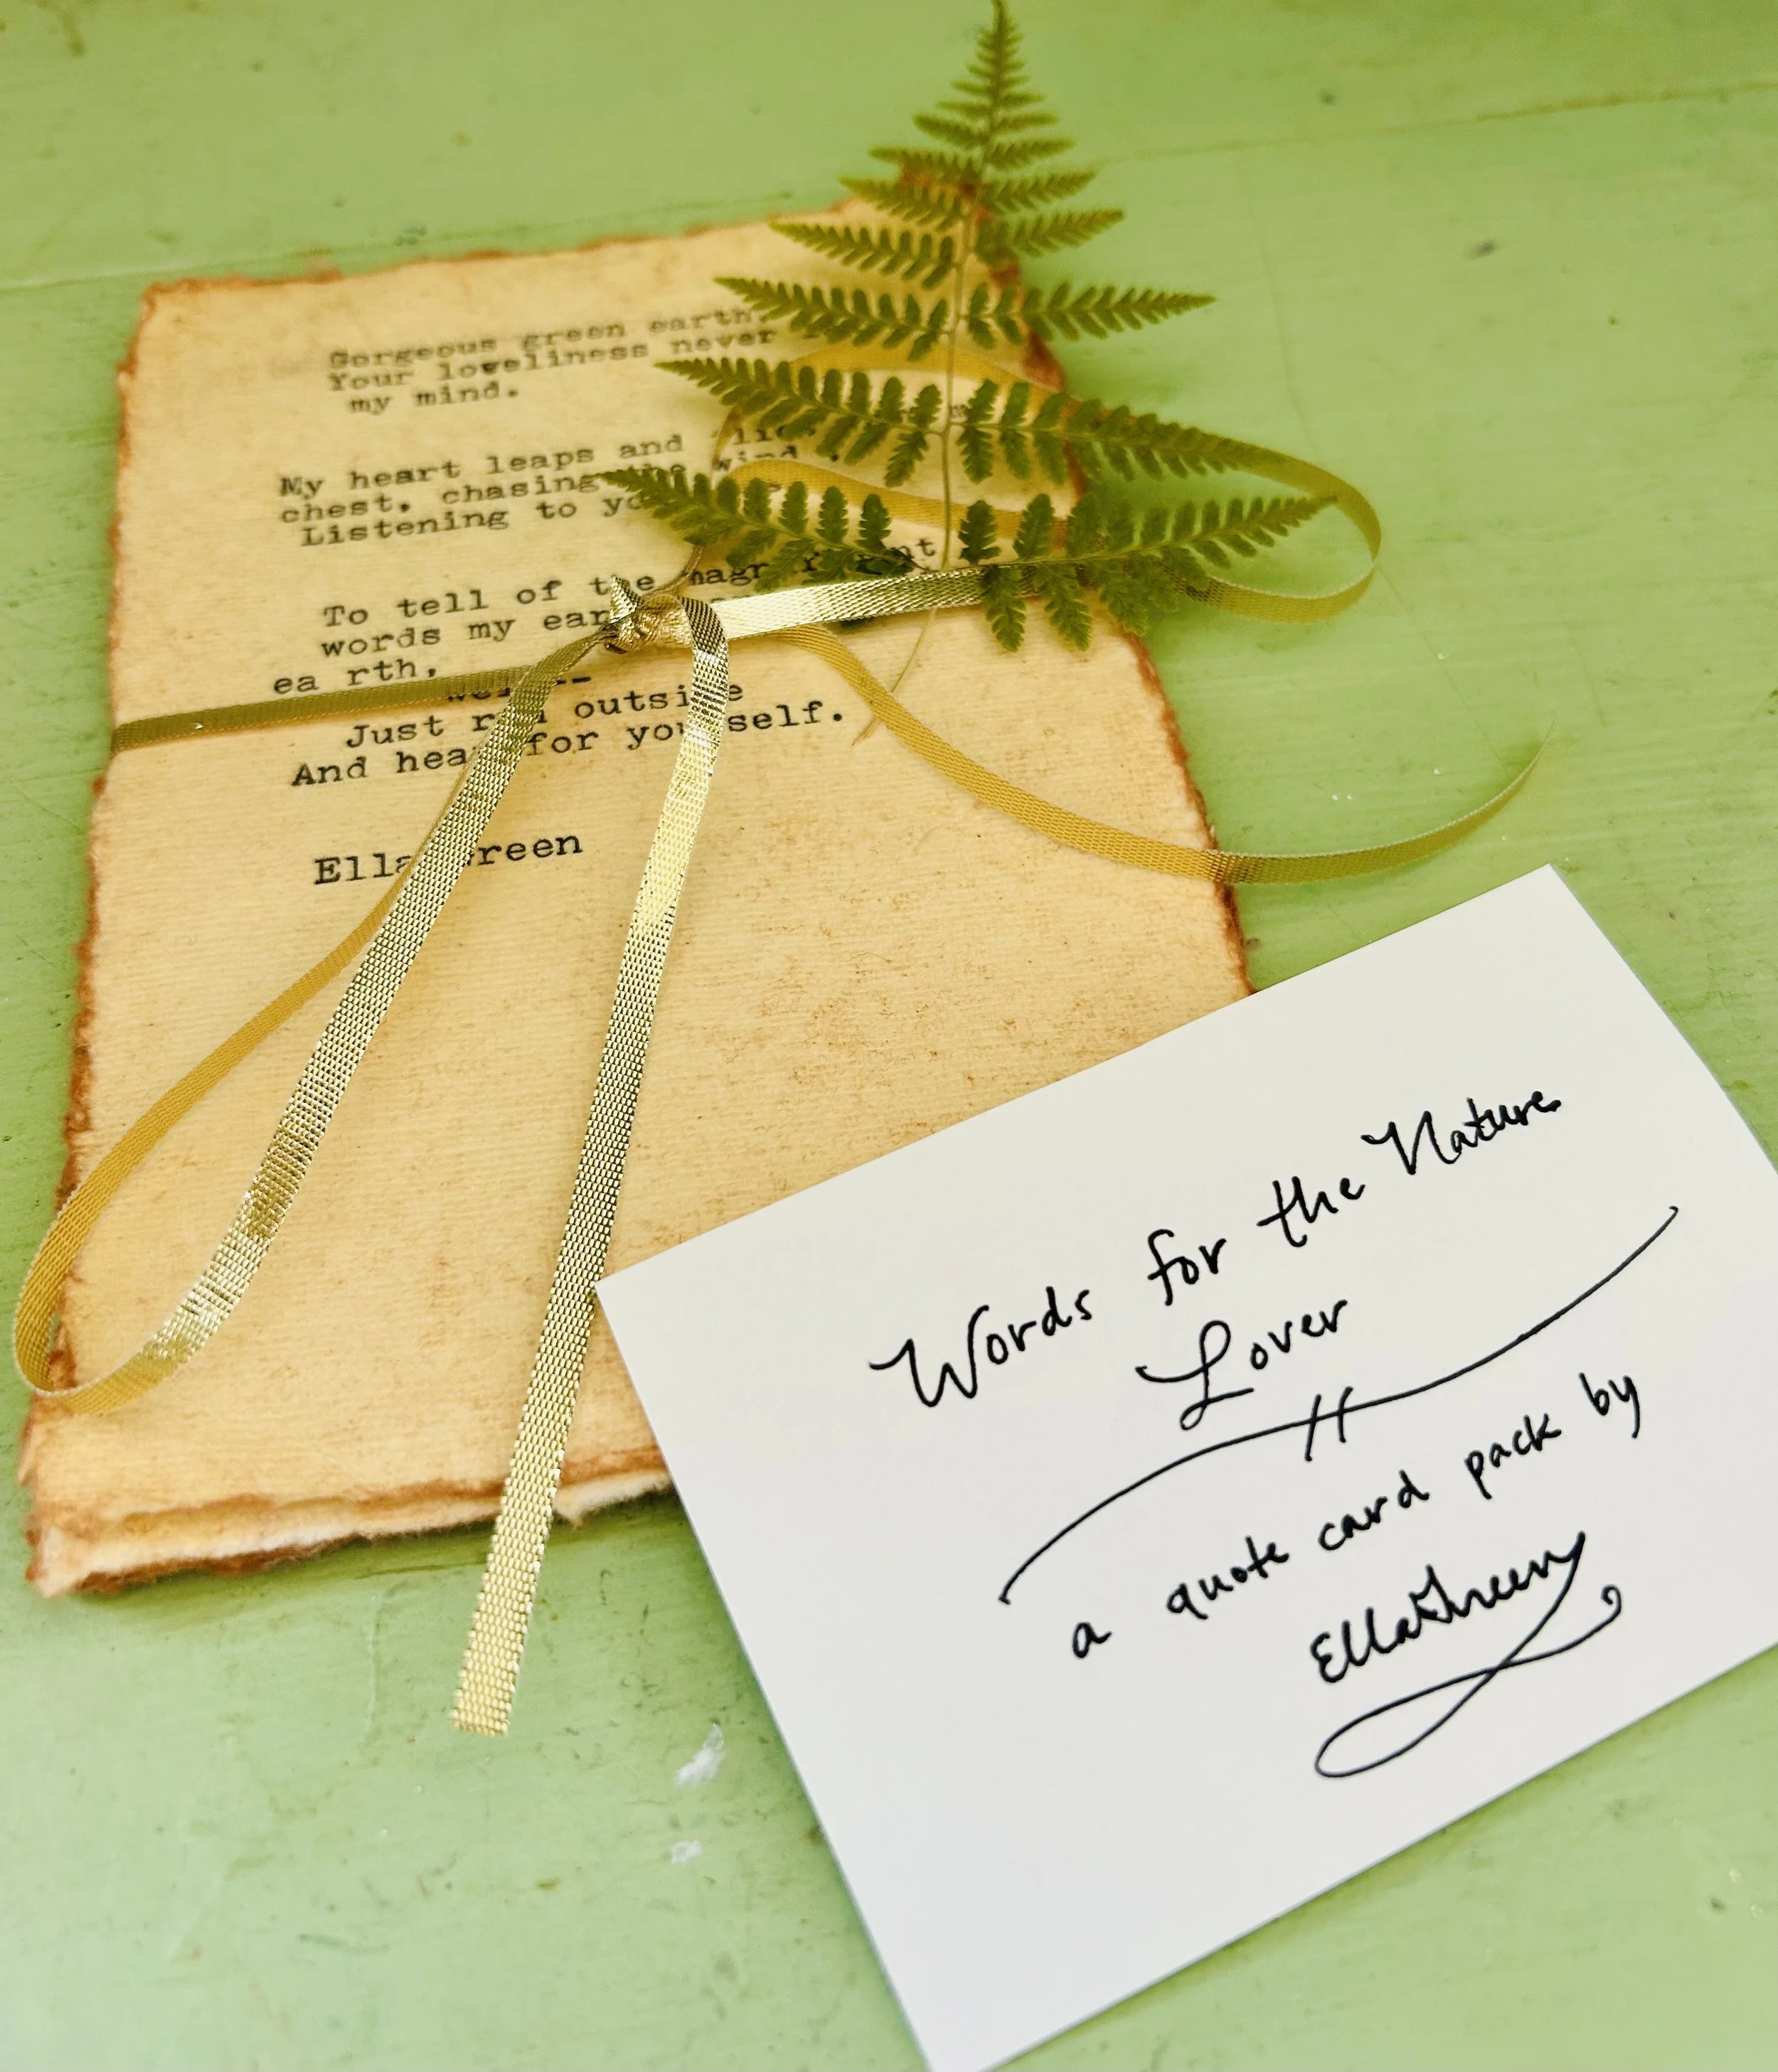 Gorgeous green earth,
Your loveliness never
my mind.
My heart leaps and
chest, chasing the wind
Listening to
To tell of the
words my
ea rth,
Just outside
And hear for yourself.
Ella Green
Words for the Nature
Lover
a quote card pack by
Ella Green